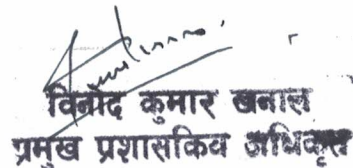 विनोद कुमार खनाल
प्रमुख प्रशासकिय अधिकृत